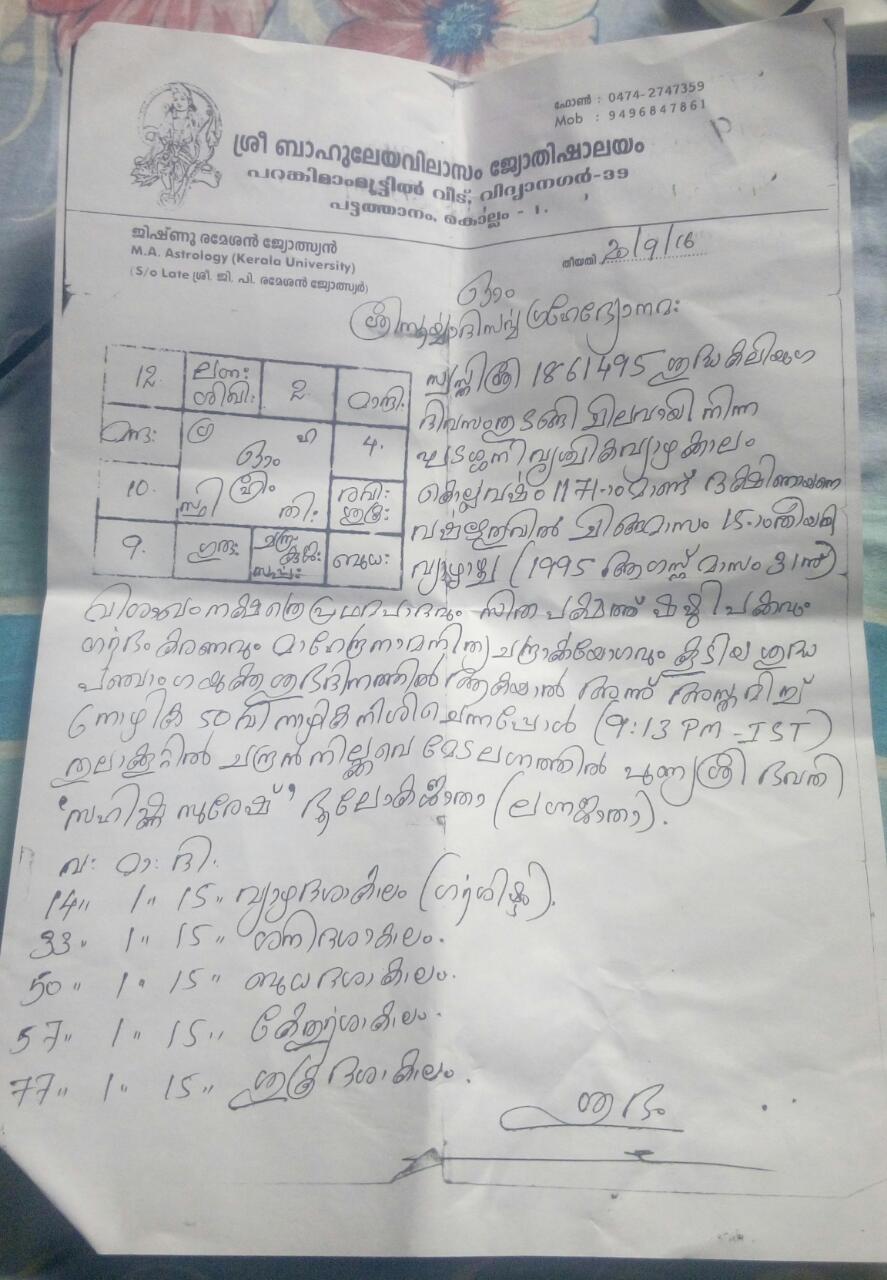 ഫോൺ : 0474-2747359
Mob : 9496847861
ശ്രീ ബാഹുലേയവിലാസം ജ്യോതിഷാലയം
പറങ്കിമാംമൂട്ടിൽ വീട്, വിദ്യാനഗർ-39
പട്ടത്താനം, കൊല്ലം - 1.
ജിഷ്ണു രമേശൻ ജ്യോത്സ്യൻ
M.A. Astrology (Kerala University)
(S/o Late ശ്രീ. ജി. പി. രമേശൻ ജ്യോത്സ്യർ)
തീയതി 20/9/16
ഓം
12 ലഗ്നഃ ശിഖിഃ 2 മാന്ദിഃ
മന്ദഃ 4.
ഓം
10. ശ്രീം രവിഃ ശുക്രഃ
9. ഗുരുഃ ചന്ദ്ര കുജഃ സർപ്പഃ ബുധഃ
സ്വസ്തിശ്രീ 1861495 ശുദ്ധ കലിയുഗ
ദിവസം തുടങ്ങി ചിലവായി നിന്ന
വൃശ്ചികവ്യാഴക്കാലം
കൊല്ലവർഷം 1171-ാംമാണ്ട് ദക്ഷിണായന
വർഷഋതുവിൽ ചിങ്ങമാസം 15-ാംതീയതി
വ്യാഴാഴ്ച (1995 ആഗസ്റ്റ് മാസം 31ന്)
വിശാഖംനക്ഷത്രപ്രഥമപാദവും സിത പക്ഷത്ത് ഷഷ്ഠി പക്കവും
ഗർദ്ദഭം കരണവും മാഹേന്ദ്രനാമനിത്യ യോഗവും കൂടിയ ശുദ്ധ
പഞ്ചാംഗയുക്ത ശുഭദിനത്തിൽ ആകയാൽ അന്ന് അസ്തമിച്ച്
നാഴിക 50 വിനാഴിക നിശിചെന്നപ്പോൾ (9:13 PM - IST)
തുലാക്കൂറിൽ ചന്ദ്രൻ നില്ക്കവെ മേടലഗ്നത്തിൽ പുണ്യശ്രീ ഭവതി
സുരേഷ്' ഭൂലോകജാതാ (ലഗ്നജാതാ).
വഃ മാഃ ദിഃ
14" 1" 15" വ്യാഴദശാകാലം (ഗർഭശിഷ്ടം).
33" 1" 15" ശനിദശാകാലം.
50" 1" 15" ബുധദശാകാലം.
57" 1" 15" കേതുർദശാകാലം.
77" 1" 15" ശുക്രദശാകാലം.
ശുഭം